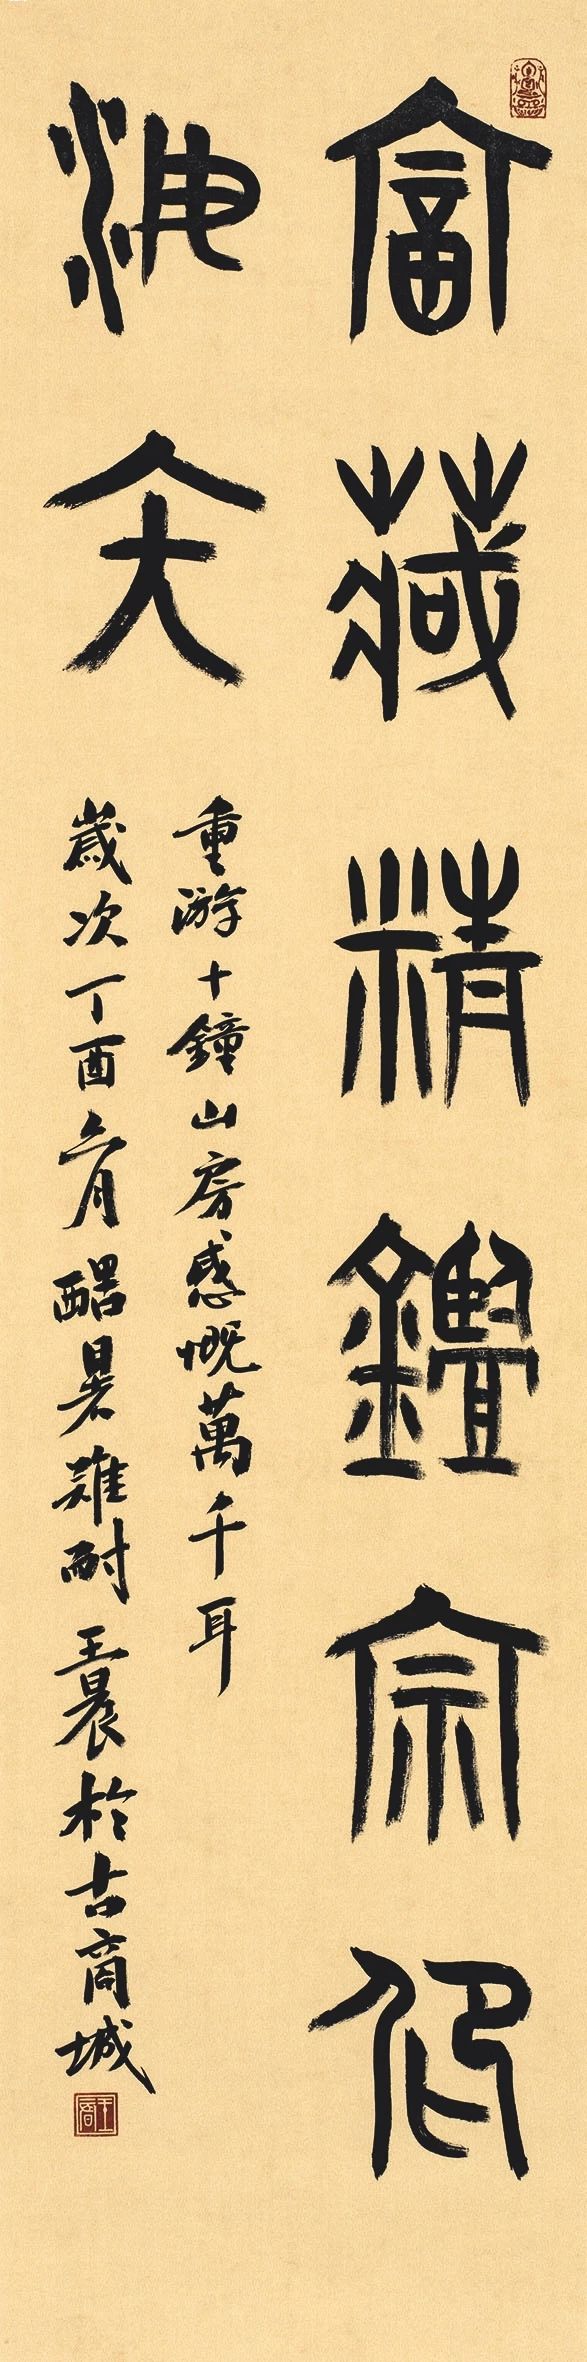 富藏精鑑宗仰
海
重游十鐘山房感慨萬千耳
歲次丁酉六月酷暑難耐王晨於古商城